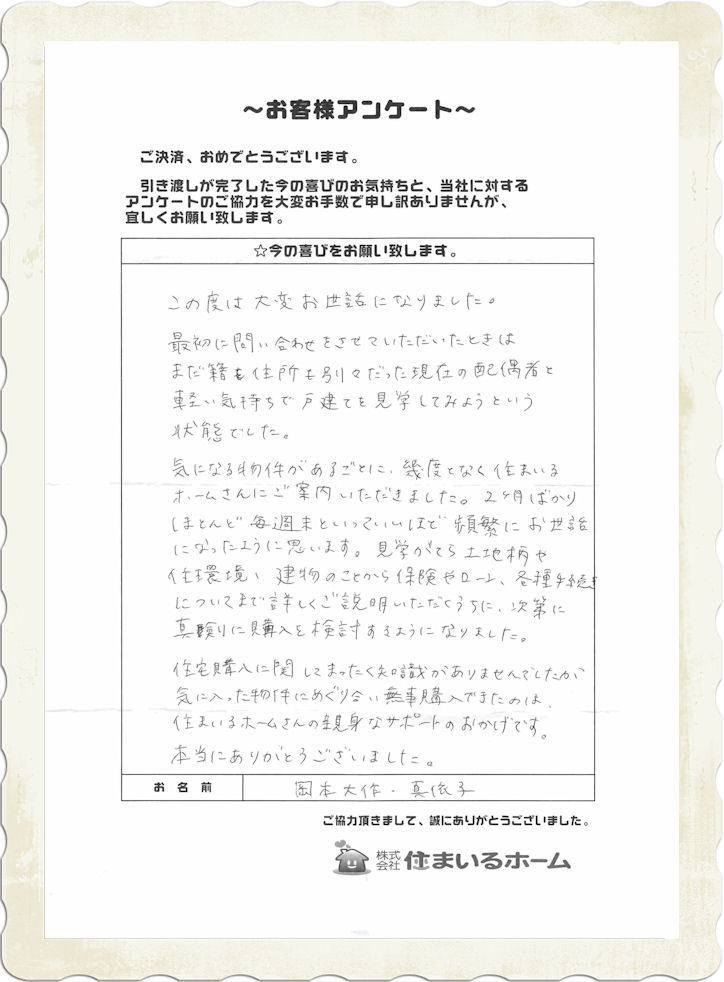 ～お客様アンケート～
ご決済、おめでとうございます。
引き渡しが完了した今の喜びのお気持ちと、当社に対する
アンケートのご協力を大変お手数で申し訳ありませんが、
宜しくお願い致します。
☆今の喜びをお願い致します。
この度は大変お世話になりました。
最初に問い合わせをさせていただいたときは
まだ籍も住所も別々だった現在の配偶者と
軽い気持ちで戸建てを見学してみようという
状態でした。
気になる物件があるごとに、幾度となく住まいる
ホームさんにご案内いただきました。2ヶ月ばかり
ほとんど毎週末といっていいほど頻繁にお世話
になったように思います。見学がてら土地柄や
住環境、建物のことから保険やローン、各種手続き
についてまで詳しくご説明いただくうちに、次第に
真剣に購入を検討するようになりました。
住宅購入に関してまったく知識がありませんでしたが
気に入った物件にめぐり合い無事購入できたのは、
住まいるホームさんの親身なサポートのおかげです。
本当にありがとうございました。
お名前 岡本大作・真依子
ご協力頂きまして、誠にありがとうございました。
株式会社 住まいるホーム